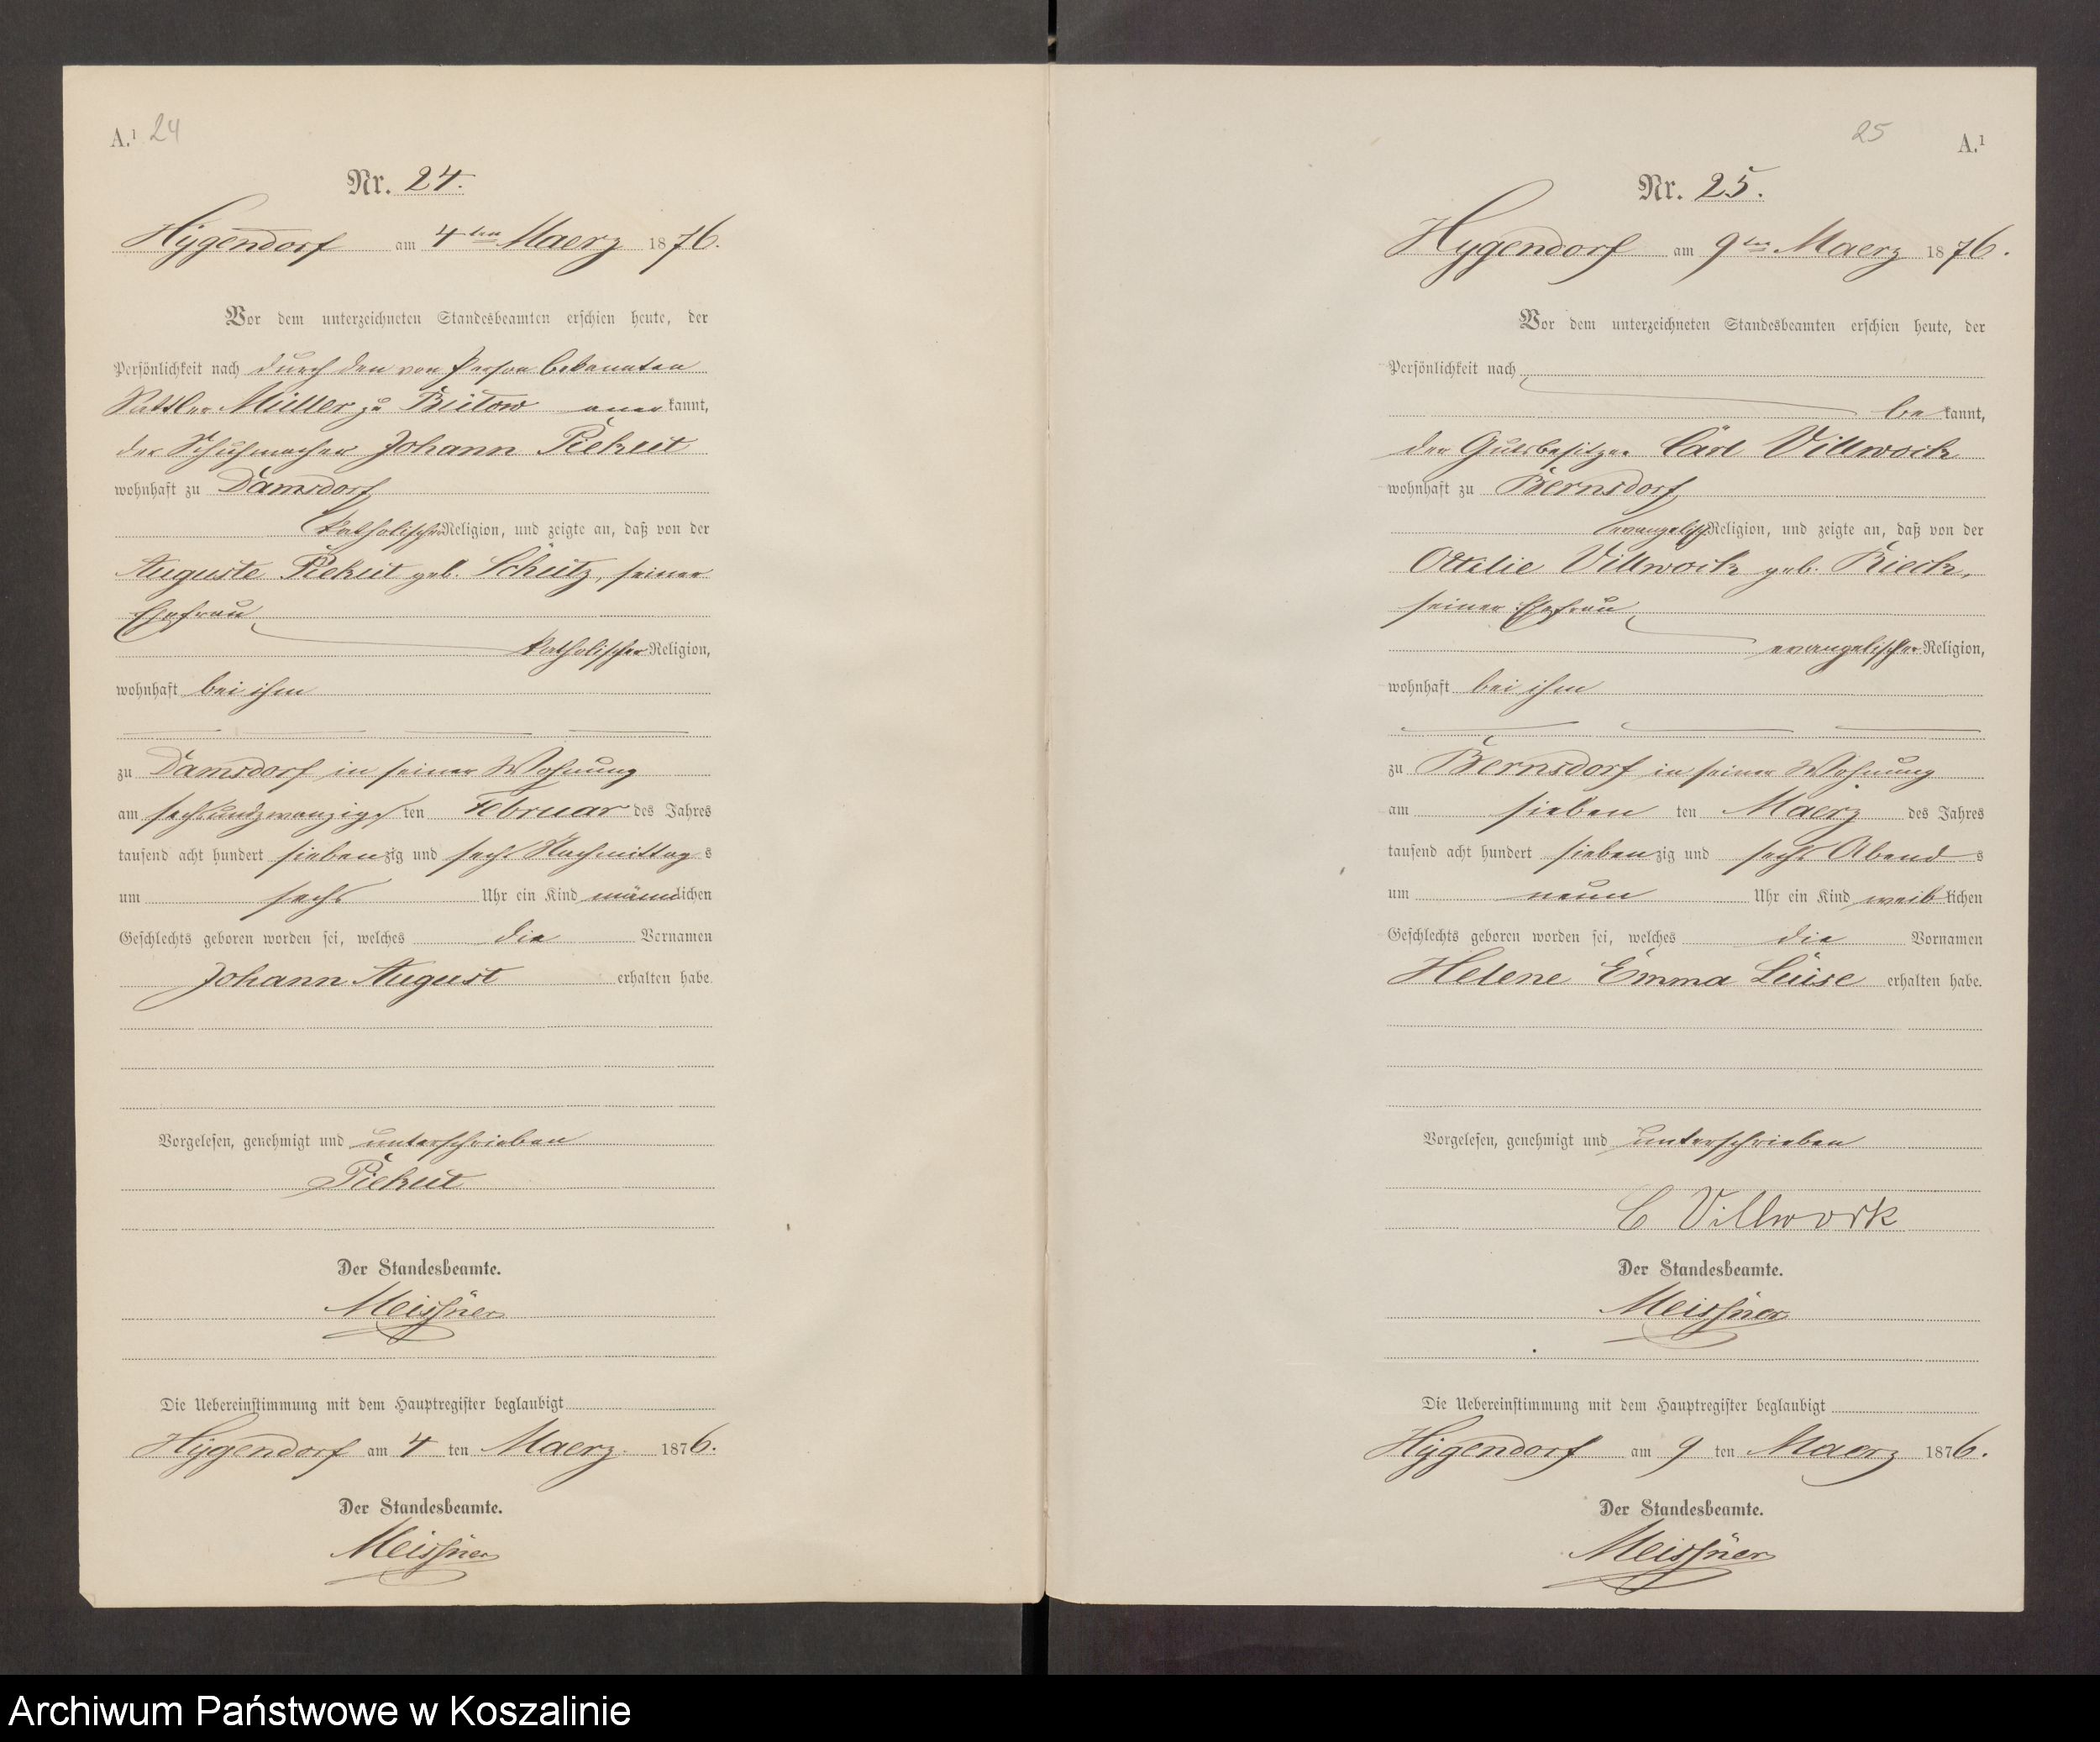 A.¹ 24
Nr. 24.
Hygendorf am 4ten Maerz 1876.
Vor dem unterzeichneten Standesbeamten erschien heute, der
Persönlichkeit nach durch den von Person bekannten
Sattler Müller zu Bütow anerkannt,
der Schuhmacher Johann Piekut
wohnhaft zu Damsdorf
katholischer Religion, und zeigte an, daß von der
Auguste Piekut geb. Schütz, seiner
Ehefrau
katholischer Religion,
wohnhaft bei ihm
zu Damsdorf in seiner Wohnung
am sechsundzwanzigsten Februar des Jahres
tausend acht hundert siebenzig und sechs Nachmittags
um sechs Uhr ein Kind männlichen
Geschlechts geboren worden sei, welches die Vornamen
Johann August erhalten habe.
Vorgelesen, genehmigt und unterschrieben
Piekut
Der Standesbeamte.
Meissner
Die Uebereinstimmung mit dem Hauptregister beglaubigt
Hygendorf am 4 ten Maerz 1876.
Der Standesbeamte.
Meissner
25 A.¹
Nr. 25.
Hygendorf am 9ten Maerz 1876.
Vor dem unterzeichneten Standesbeamten erschien heute, der
Persönlichkeit nach
bekannt,
der Gutsbesitzer Carl Villwock
wohnhaft zu Bernsdorf
evangelisch Religion, und zeigte an, daß von der
Ottilie Villwock geb. Rieck,
seiner Ehefrau
evangelischer Religion,
wohnhaft bei ihm
zu Bernsdorf in seiner Wohnung
am sieben ten Maerz des Jahres
tausend acht hundert siebenzig und sechs Abends
um neun Uhr ein Kind weiblichen
Geschlechts geboren worden sei, welches die Vornamen
Helene Emma Luise erhalten habe.
Vorgelesen, genehmigt und unterschrieben
C Villwock
Der Standesbeamte.
Meissner
Die Uebereinstimmung mit dem Hauptregister beglaubigt
Hygendorf am 9 ten Maerz 1876.
Der Standesbeamte.
Meissner
Archiwum Państwowe w Koszalinie